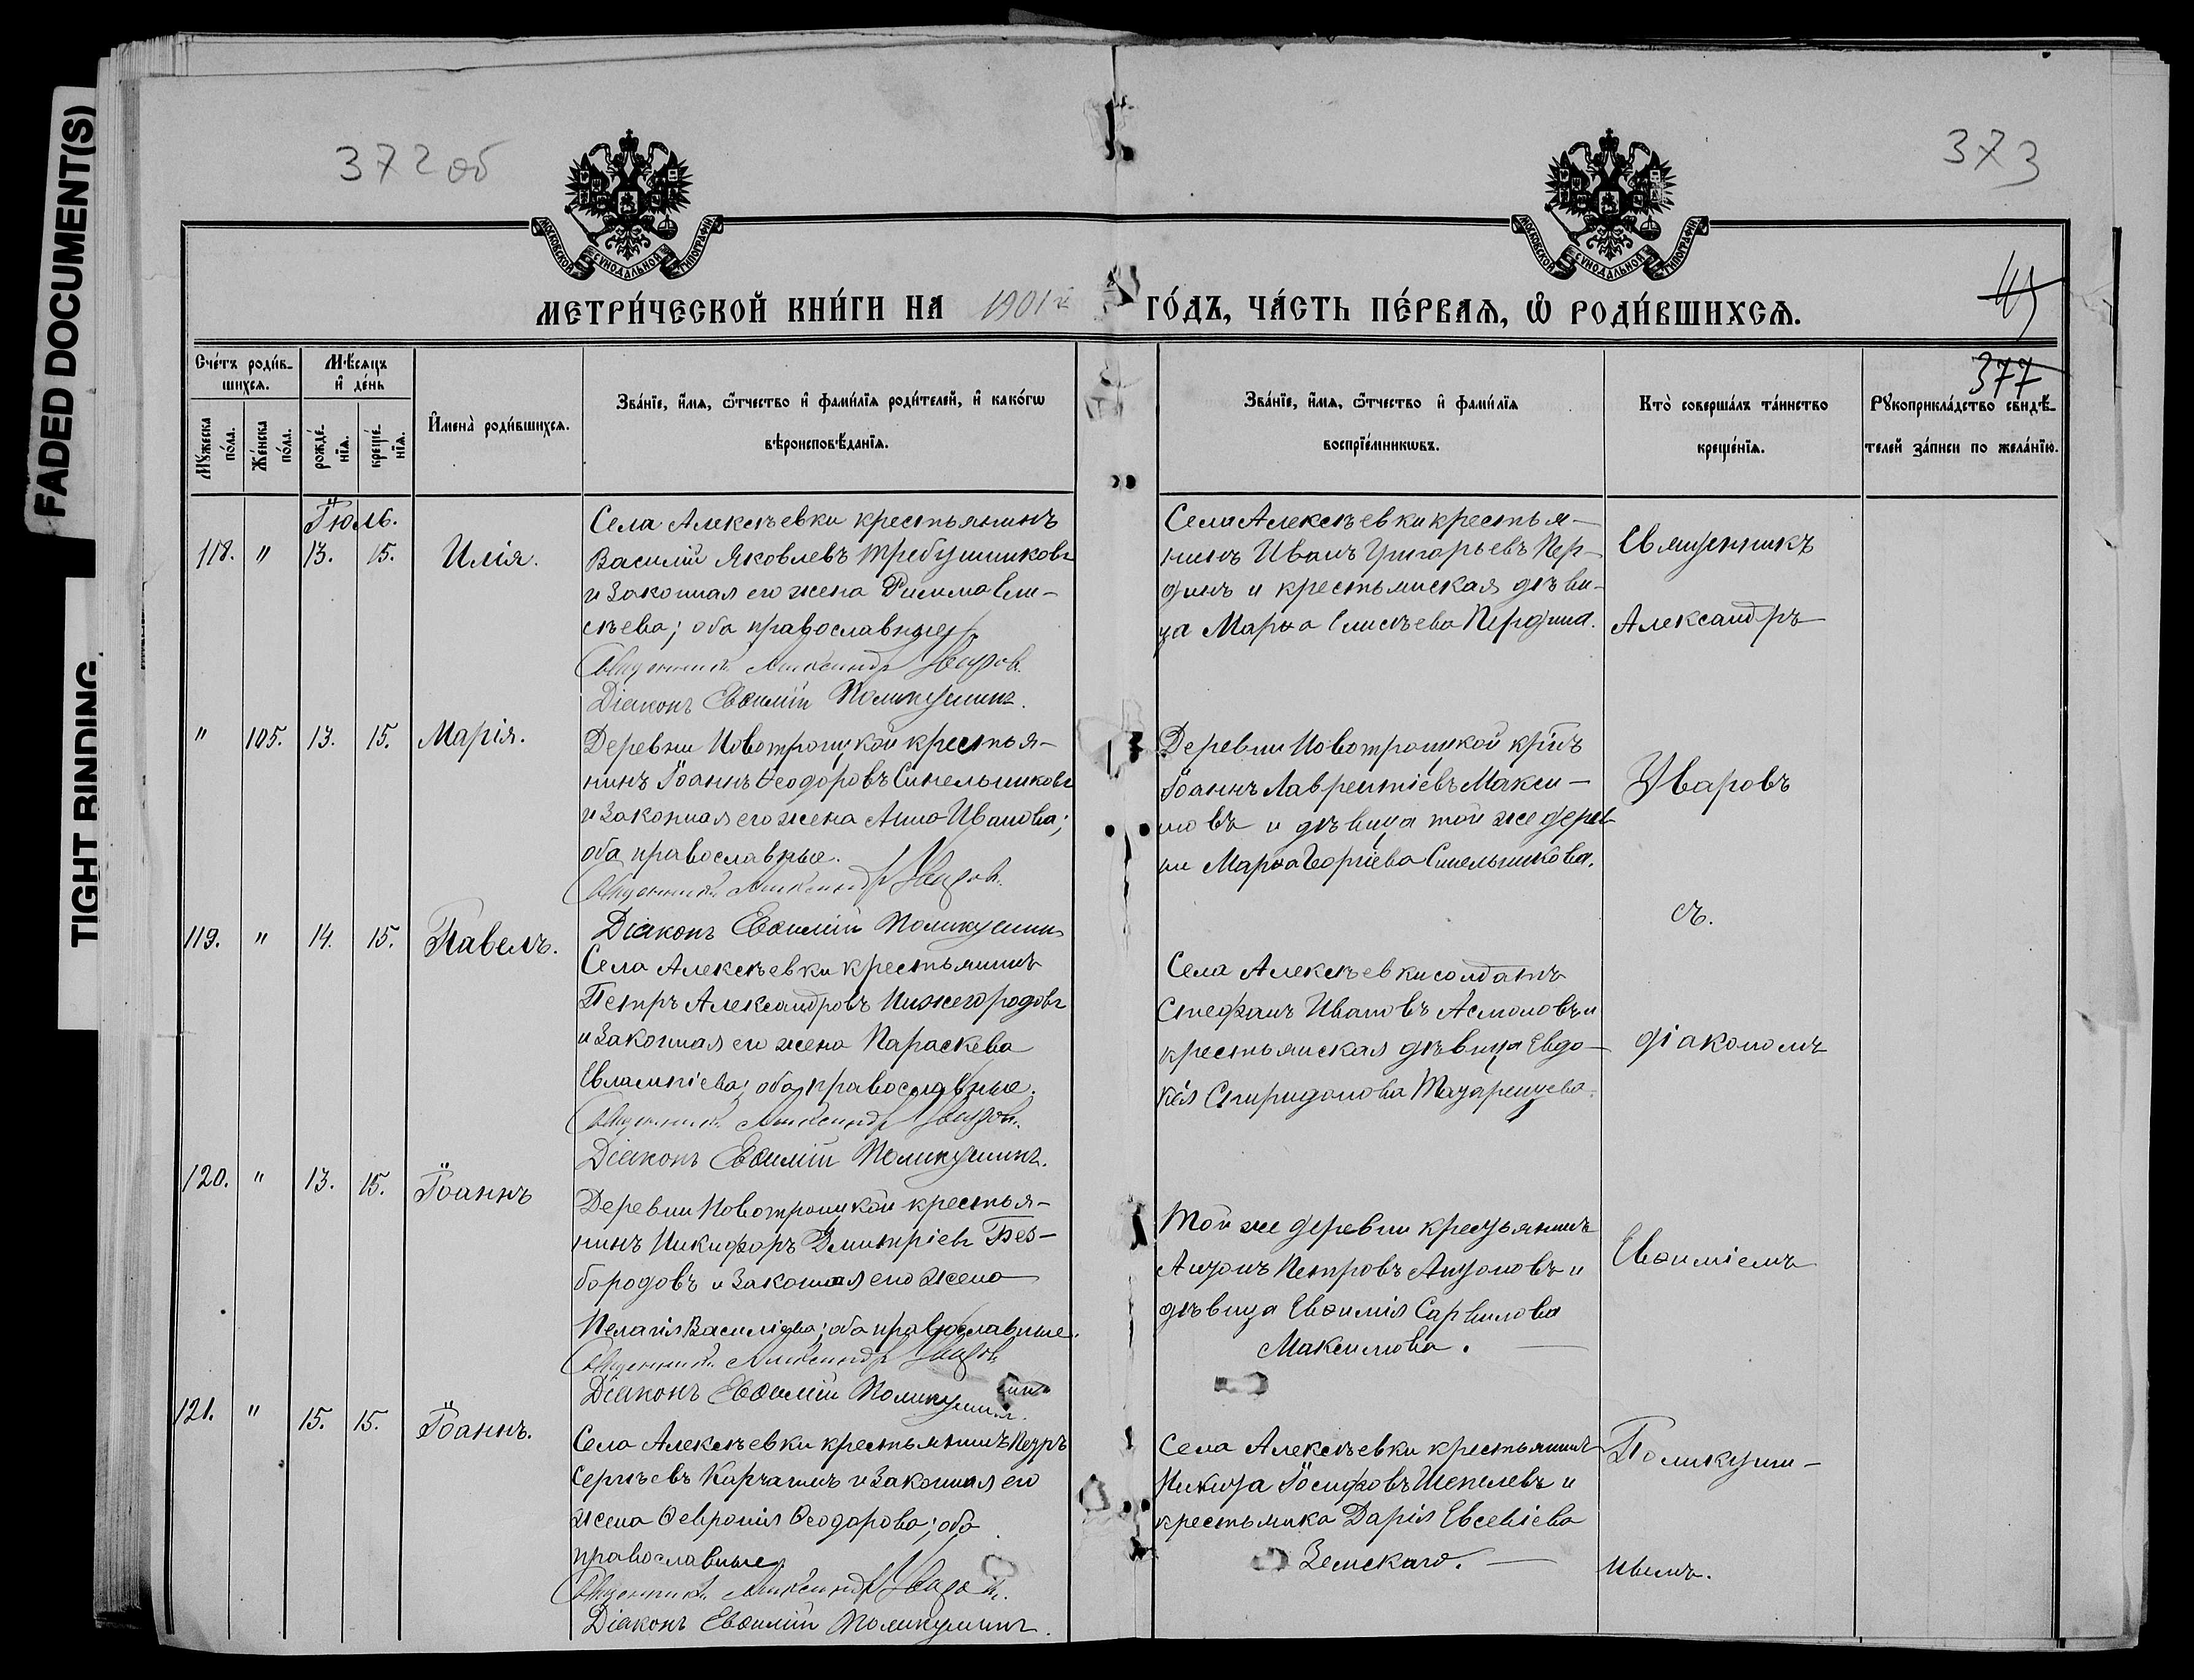 FADED DOCUMENT(S)
TIGHT BINDING
372 об
373
МОСКОВСКОЙ СУНОДАЛЬНОЙ ТИПОГРАФІИ
МОСКОВСКОЙ СУНОДАЛЬНОЙ ТИПОГРАФІИ
МЕТРИ́ЧЕСКОЙ КНИ́ГИ НА 1901й ГО́ДЪ, ЧА́СТЬ ПЕ́РВАѦ, Ѽ РОДИ́ВШИХСѦ.
377
Сче́тъ роди́в-
шихсѧ.
Мѣ́сѧцъ
и҆ де́нь
Му́жеска
по́ла.
Же́нска
по́ла.
рожде́-
нїѧ.
креще́-
нїѧ.
И҆мена̀ роди́вшихсѧ.
Зва́нїе, и҆́мѧ, ѻ҆́тчество и҆ фами́лїѧ роди́телей, и҆ како́гѡ
вѣроисповѣ́данїѧ.
Зва́нїе, и҆́мѧ, ѻ҆́тчество и҆ фами́лїѧ
воспрїе́мникѡвъ.
Кто̀ соверша́лъ та́инство
креще́нїѧ.
Рꙋкоприкла́дство свидѣ́-
телей за́писи по жела́нїю.
Іюль.
118. " 13. 15. Илія.
Села Алексѣевки крестьянинъ
Василій Яковлевъ Требушниковъ
и законная его жена Фисима Ели-
сѣева; оба православные.
Священникъ Александръ Уваровъ.
Діаконъ Евѳимій Поликушинъ.
Села Алексѣевки крестья-
нинъ Иванъ Григорьевъ Пер-
динъ и крестьянская дѣви-
ца Марѳа Елисѣева Пердина.
Священникъ
Александръ
" 105. 13. 15. Марія.
Деревни Новотроицкой крестья-
нинъ Іоаннъ Ѳеодоровъ Синельниковъ
и законная его жена Анна Иванова;
оба православные.
Священникъ Александръ Уваровъ.
Діаконъ Евѳимій Поликушинъ
Деревни Новотроицкой кр̃нъ
Іоаннъ Лаврентіевъ Макси-
мовъ и дѣвица той же дерев
ни Марѳа Георгіева Синельникова.
Уваровъ
съ.
119. " 14. 15. Павелъ.
Села Алексѣевки крестьянинъ
Петръ Александровъ Нижегородовъ
и законная его жена Параскева
Евлампіева; оба православные.
Священникъ Александръ Уваровъ.
Діаконъ Евѳимій Поликушинъ.
Села Алексѣевки солдатъ
Стефанъ Ивановъ Асмоловъ и
крестьянская дѣвица Евдо-
кія Спиридонова Казаренцева.
діакономъ
120. " 13. 15. Іоаннъ
Деревни Новотроицкой крестья-
нинъ Никифоръ Димитріевъ Без-
бородовъ и законная его жена
Пелагія Василіева; оба православные.
Священникъ Александръ Уваровъ
Діаконъ Евѳимій Поликушинъ.
Той же деревни крестьянинъ
Антонъ Петровъ Антоновъ и
дѣвица Евѳимія Саввилова
Максимова.
Евѳиміемъ
121. " 15. 15. Іоаннъ.
Села Алексѣевки крестьянинъ Петръ
Сергѣевъ Карчагинъ и законная его
жена Ѳевронія Ѳеодорова; оба
православные.
Священникъ Александръ Уваровъ.
Діаконъ Евѳимій Поликушинъ.
Села Алексѣевки крестьянинъ
Никита Іосифовъ Шепелевъ и
крестьянка Дарія Евсевіева
Земскаго.
Поликуши-
нымъ.